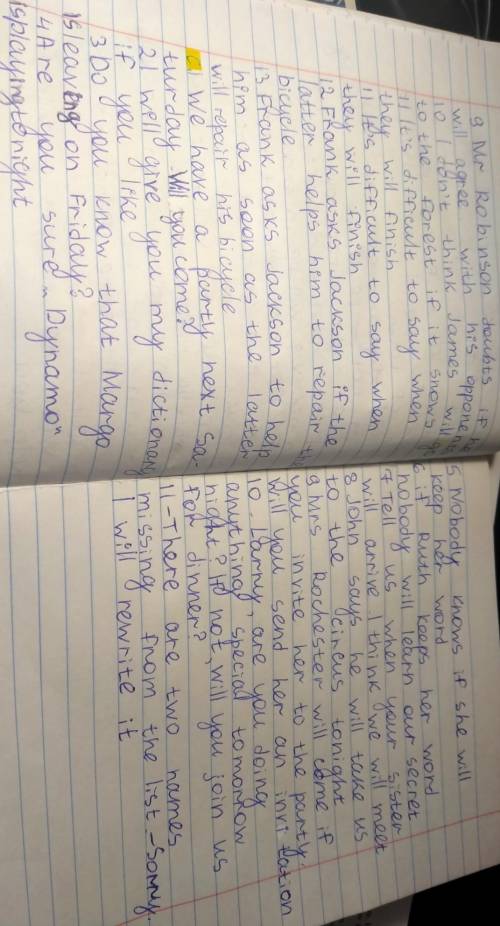 9 Mr Robinson doubts if he
will agree with his opponents
10 I don't think James will go
to the forest if it snows
11 It's difficult to say when
they will finish
11 It's difficult to say when
they will finish
12 Frank asks Jackson if the
latter helps him to repair the
bicycle
13 Frank asks Jackson to help
him as soon as the latter
will repair his bicycle
1 We have a party next Sa-
turday. Will you come?
2 I will give you my dictionary
if you like
3 Do you know that Margo
is leaving on Friday?
4 Are you sure „Dynamo"
is playing tonight
5 Nobody knows if she will
keep her word
6 if Ruth keeps her word
nobody will learn our secret
7 Tell us when your sister
will arrive. I think we will meet
8 John says he will take us
to the circus tonight
9 Mrs Rochester will come if
you invite her to the party.
Will you send her an invitation
10. Larry, are you doing
anything special tomorrow
night? If not, will you join us
for dinner?
11 - There are two names
missing from the list - Sorry.
I will rewrite it